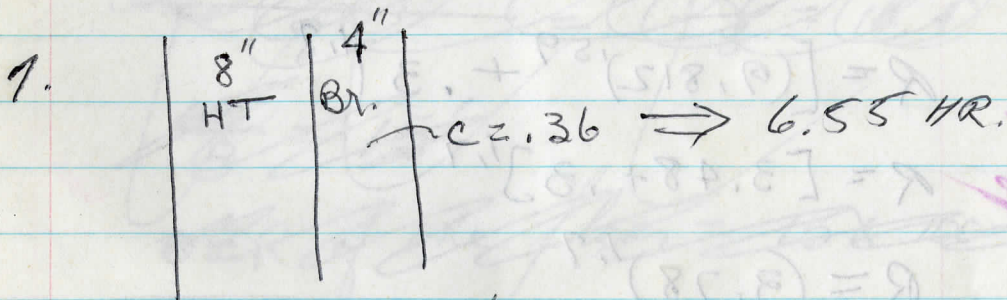 1.
8" 4"
HT Br.
c = .36 ⇒ 6.55 HR.